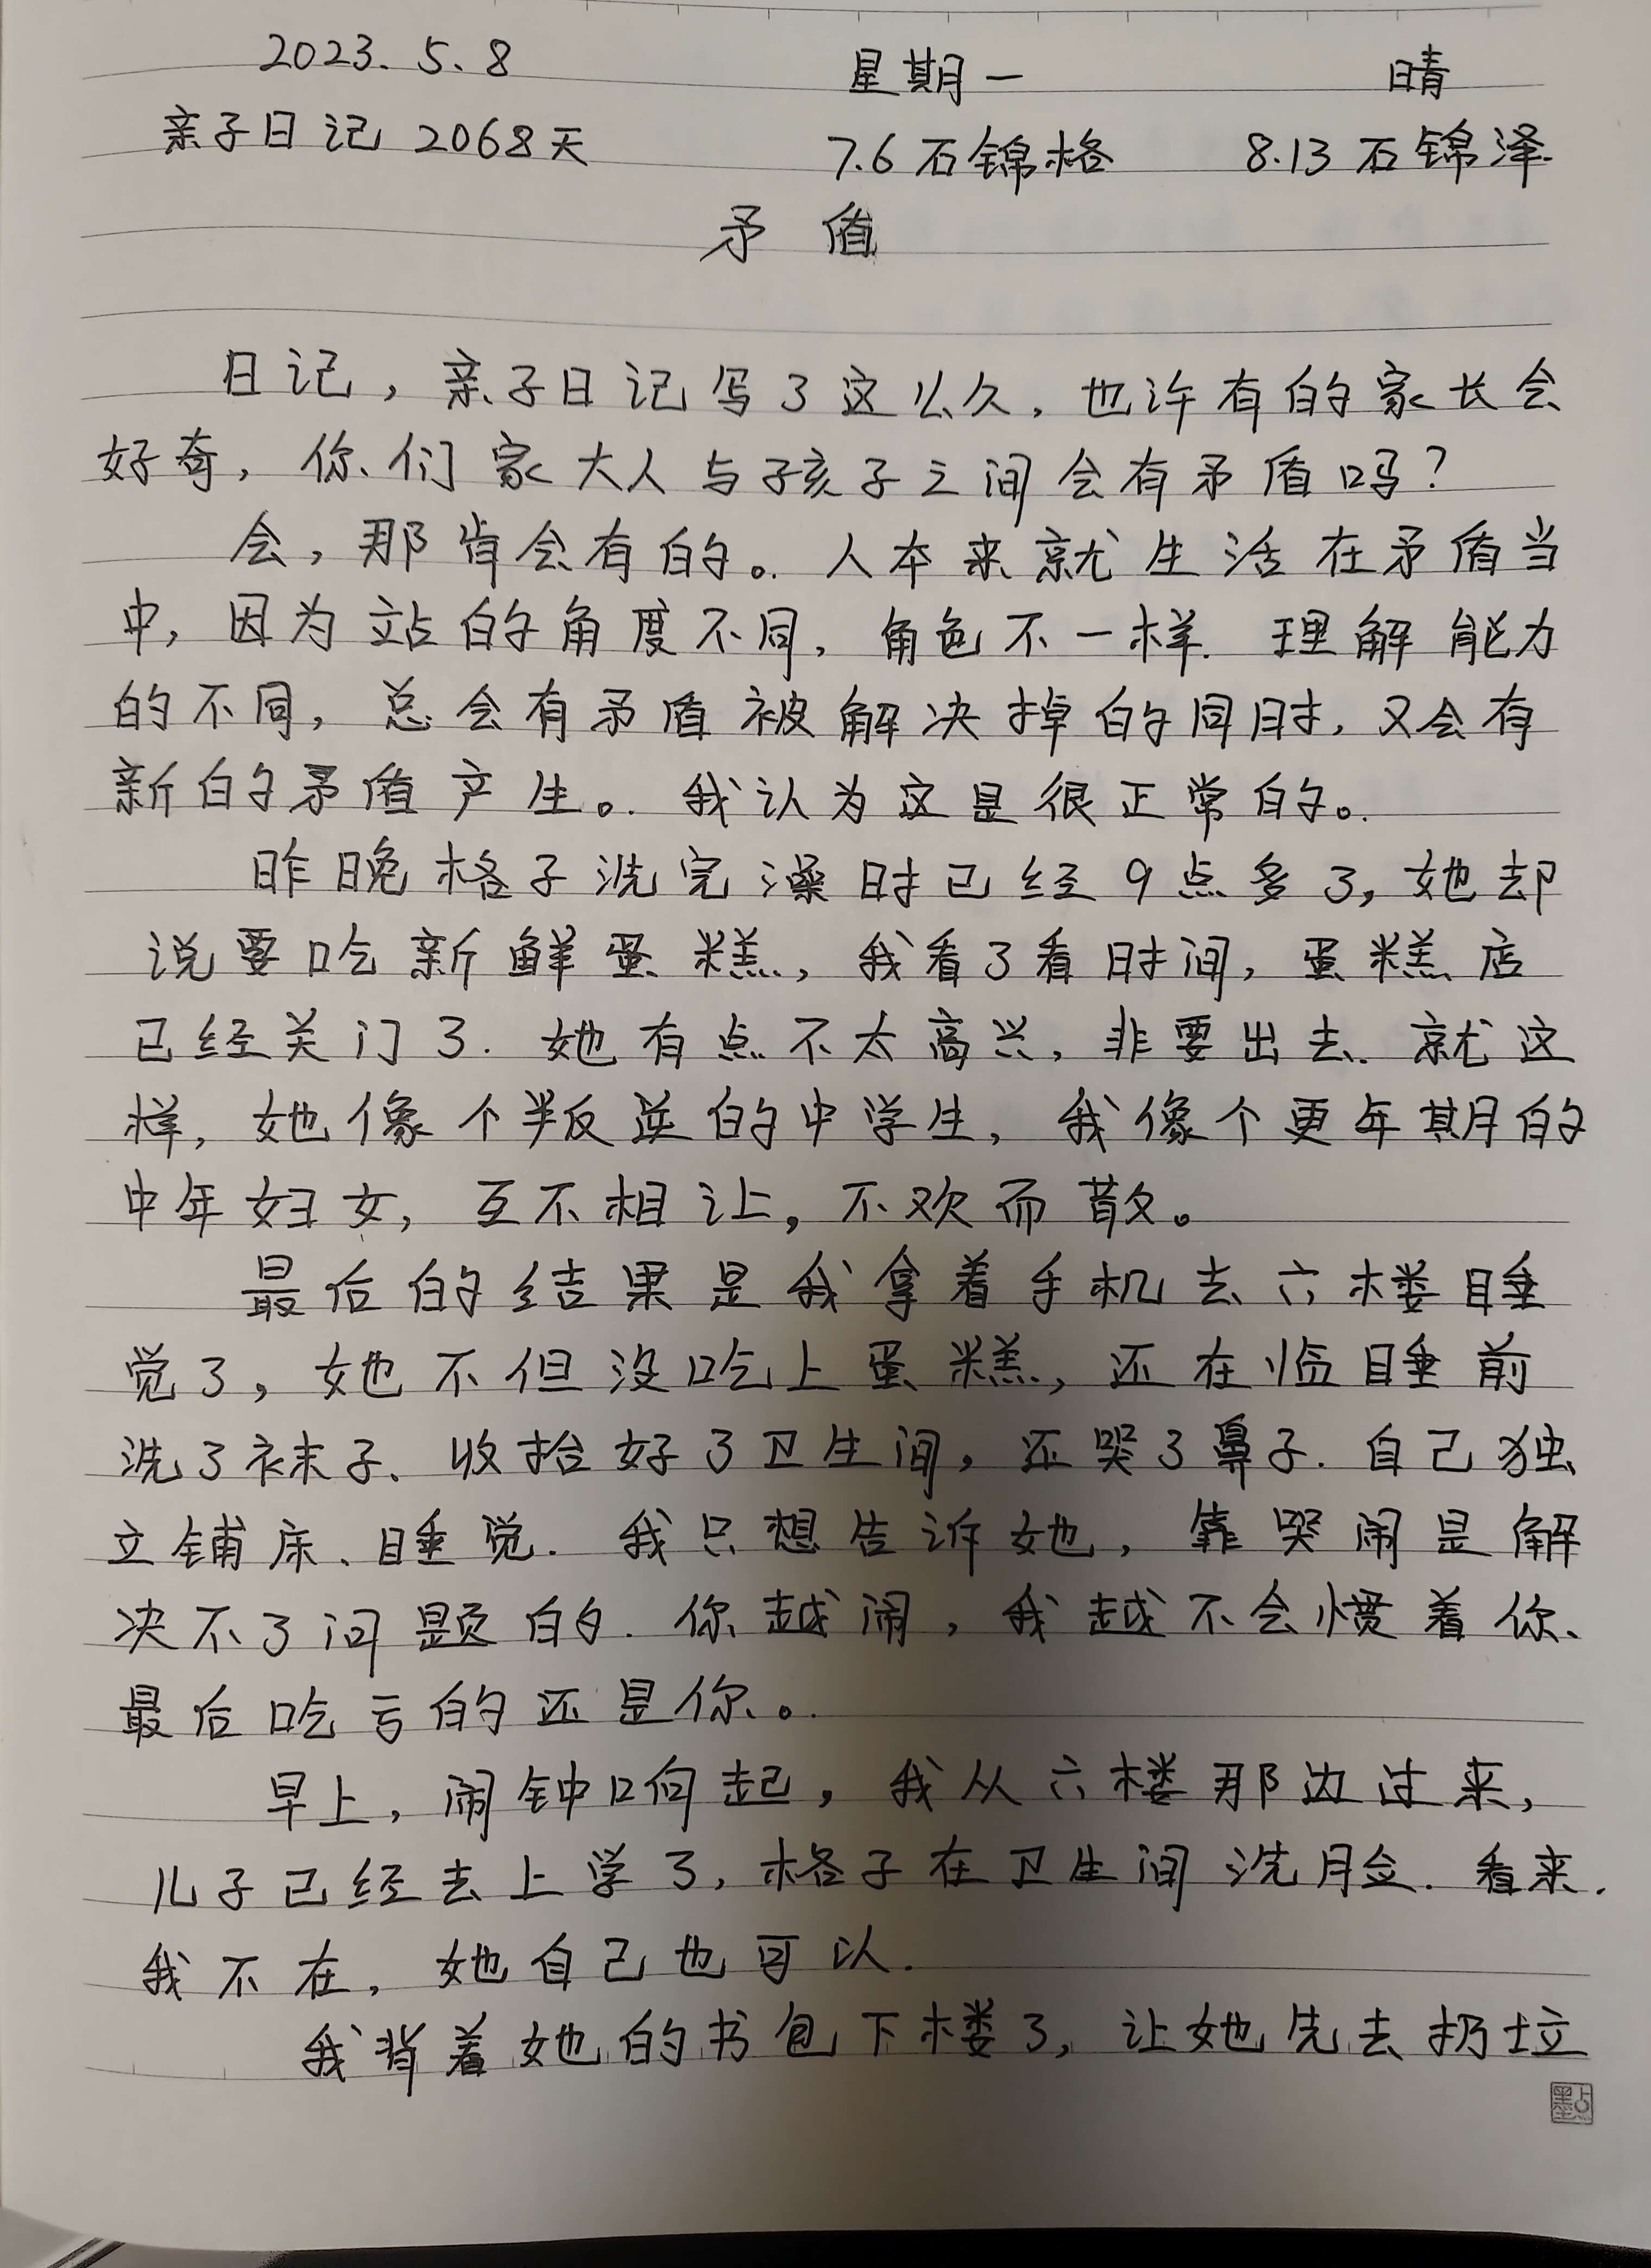 2023.5.8 星期一 晴
亲子日记 2068天 7.6 石锦格 8.13 石锦泽
矛盾
日记，亲子日记写了这么久，也许有的家长会
好奇，你们家大人与孩子之间会有矛盾吗？
会，那肯会有的。人本来就生活在矛盾当
中，因为站的角度不同，角色不一样.理解能力
的不同，总会有矛盾被解决掉的同时，又会有
新的矛盾产生。我认为这是很正常的。
昨晚格子洗完澡时已经9点多了，她却
说要吃新鲜蛋糕，我看了看时间，蛋糕店
已经关门了.她有点不太高兴，非要出去.就这
样，她像个叛逆的中学生，我像个更年期的
中年妇女，互不相让，不欢而散。
最后的结果是我拿着手机去六楼睡
觉了，她不但没吃上蛋糕，还在临睡前
洗了袜子、收拾好了卫生间，还哭了鼻子.自己独
立铺床、睡觉.我只想告诉她，靠哭闹是解
决不了问题的.你越闹，我越不会惯着你、
最后吃亏的还是你。
早上，闹钟响起，我从六楼那边过来，
儿子已经去上学了，格子在卫生间洗脸.看来.
我不在，她自己也可以.
我背着她的书包下楼了，让她先去扔垃
點墨